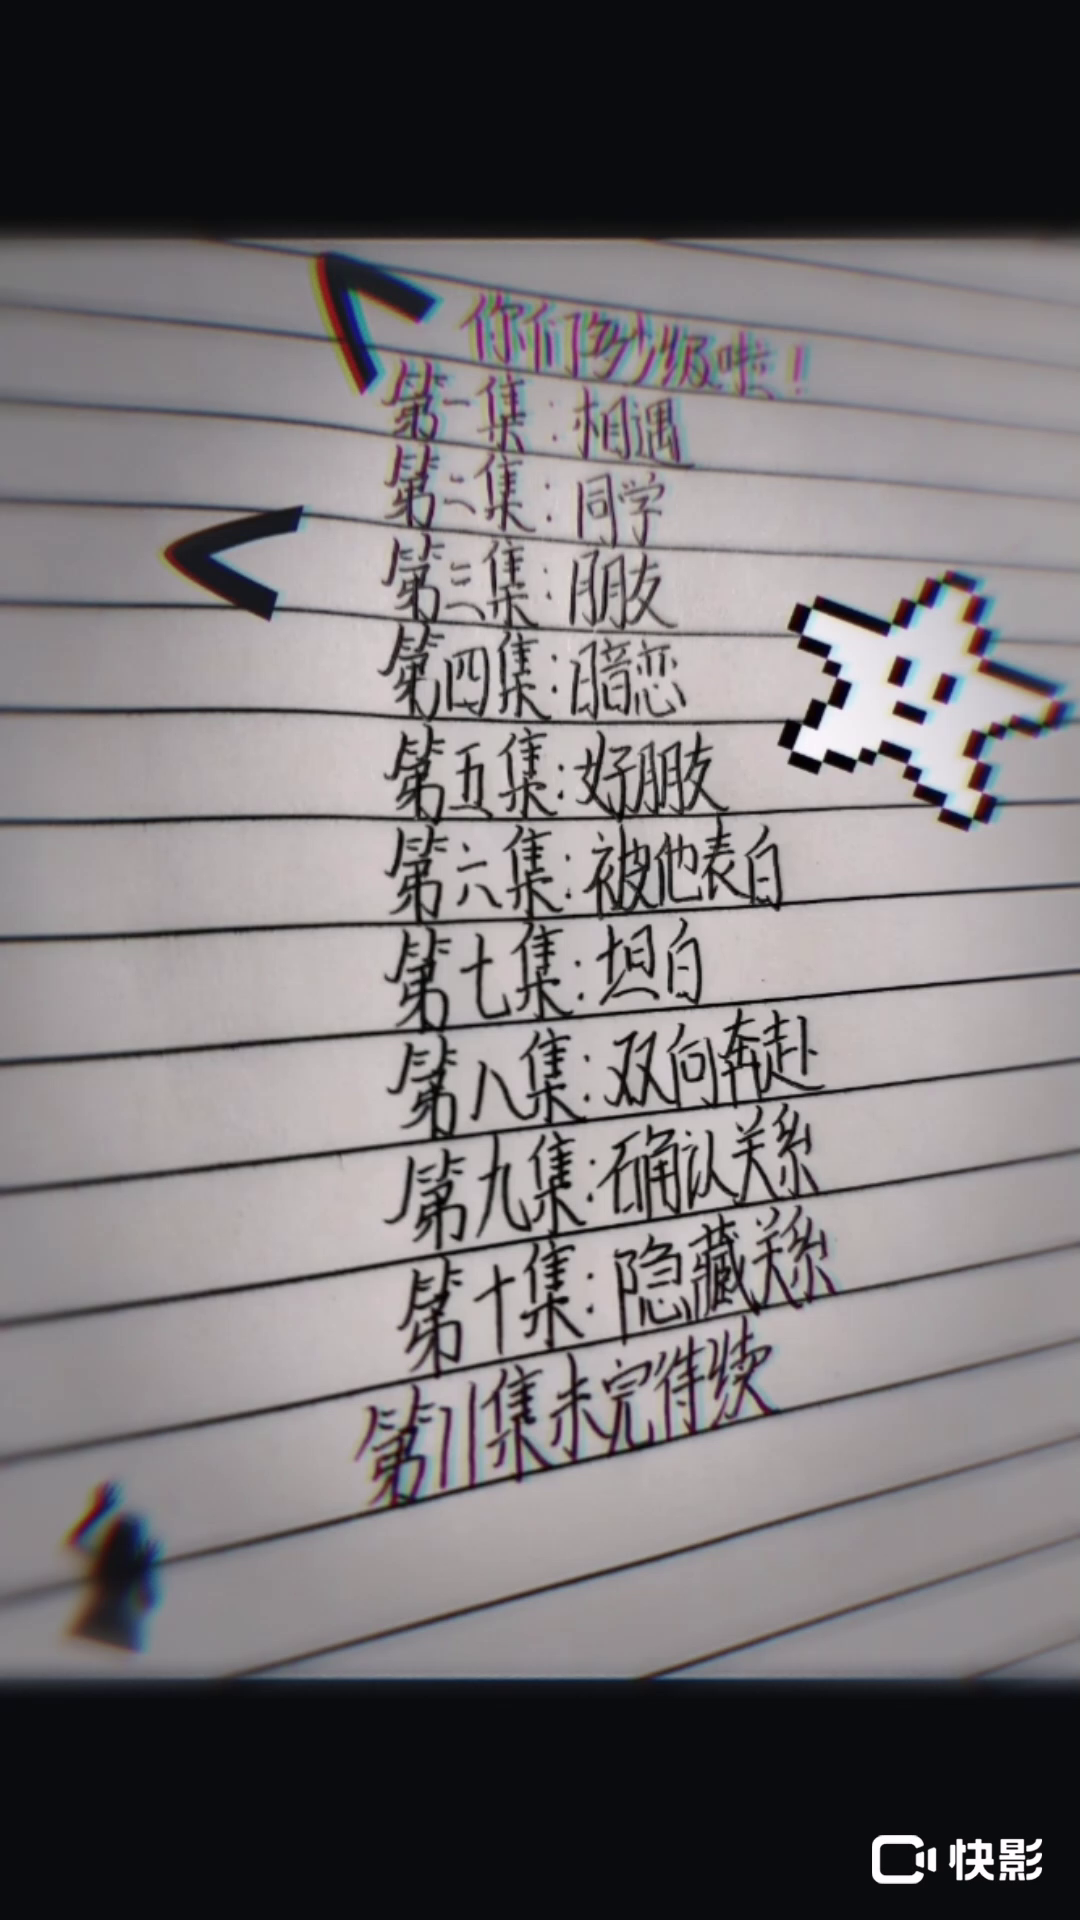 你们多少级啦！
第一集：相遇
第二集：同学
第三集：朋友
第四集：暗恋
第五集：好朋友
第六集：被他表白
第七集：坦白
第八集：双向奔赴
第九集：确认关系
第十集：隐藏关系
第11集未完待续
快影